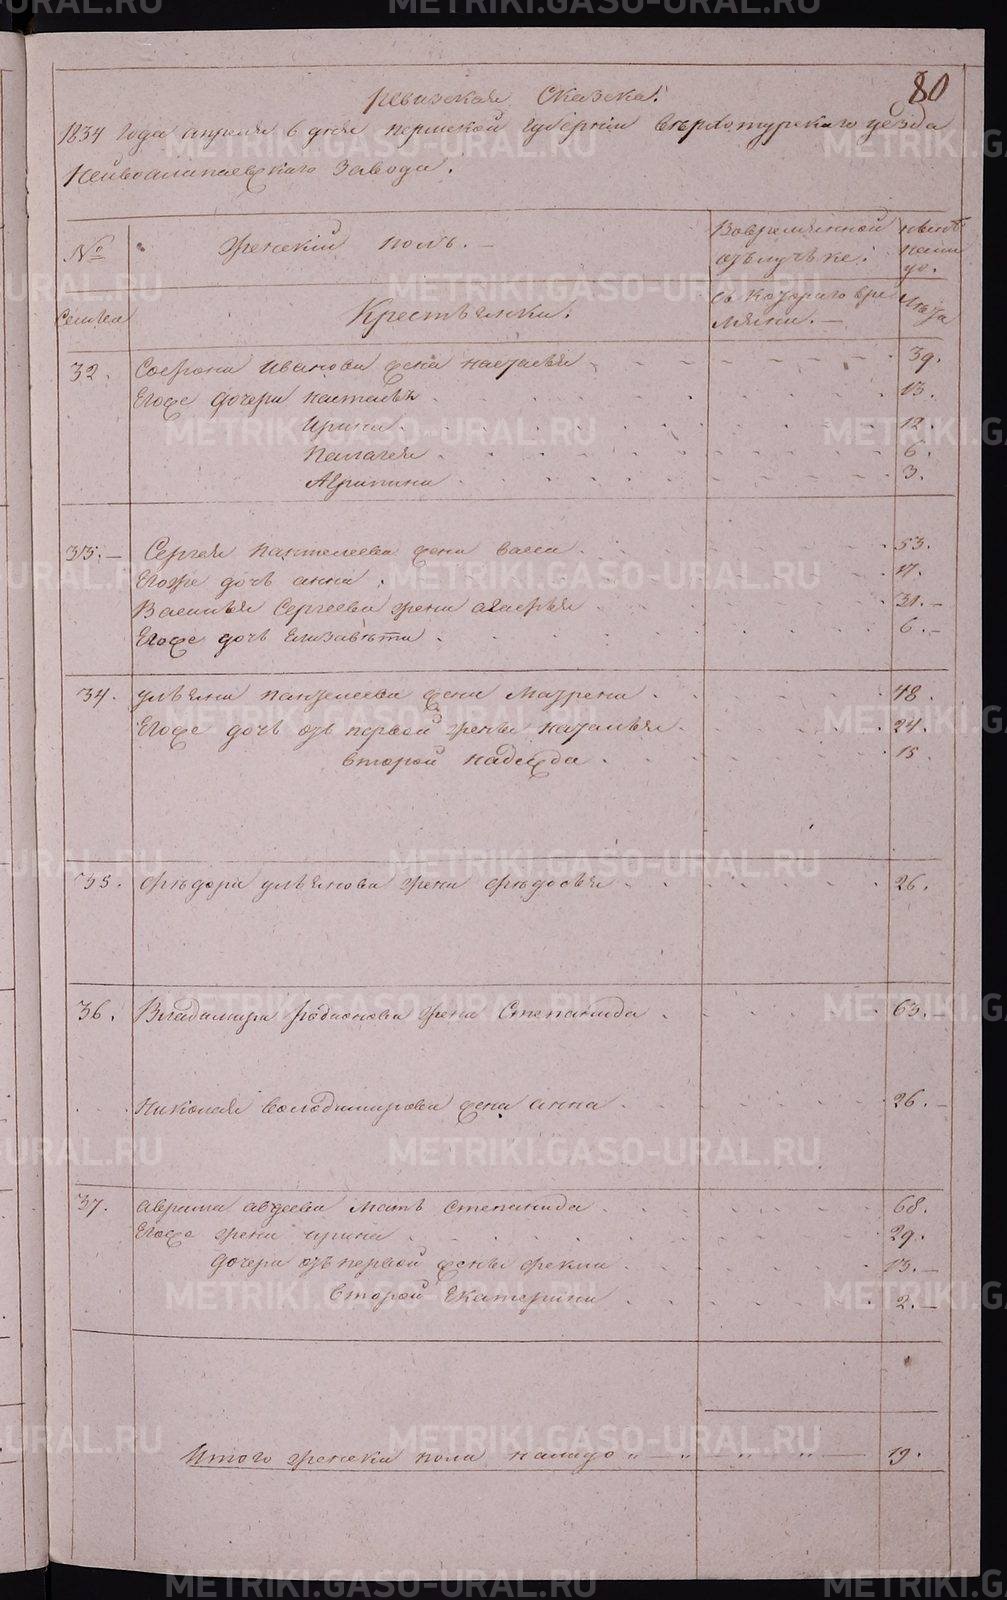 80
Ревизская Сказка.
1834 Года апреля 6 дня пермской Губернии верхотурскаго уезда
Нейвоалапаевскаго Завода.
№ женский полъ. Вовременной ныне
отълучъке. нали
цо.
Семьи Крестьянки. Съ котораго вре Лета
мяни.
32. Софрона Иванова жена настасья 39.
Егоже дочери насталья 13.
Ирина 12.
Палагея 6.
Агрипина 3.
33. Сергея пантелеева жена васса 53.
Егоже дочь анна 17.
Василья Сергеева жена 31.
Егоже дочь Елизавета 6.
34. ульяна пантелеева жена Матрена 48.
Егоже дочь отъ первой жены наталья 24.
второй надежда 15
35. фёдора ульянова жена федосья 26.
36. Владимира Родионова жена Степанида 63.
Николая володимирова жена анна 26.
37. аврама авдеева мать степанида 68.
Егоже жена ирина 29.
дочери отъ первой жены фекла 13.
Второй Екатерина 2.
Итого женска пола налицо 19.
METRIKI.GASO-URAL.RU